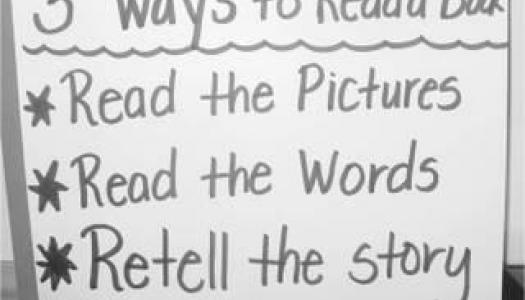 3 Ways to Read a Book
* Read the Pictures
* Read the Words
* Retell the story